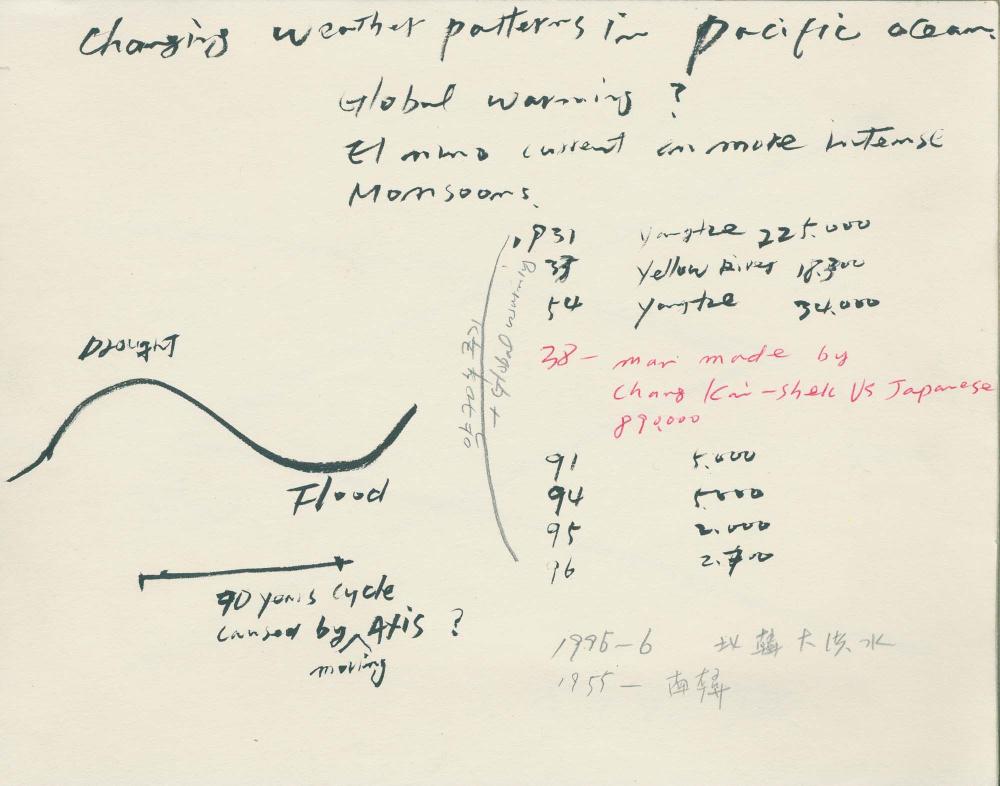 Changing weather patterns in Pacific ocean.
Global warming ?
El nino current on more intense
Monsoons.
1931 Yangtze 225.000
Yellow River 18.300
54 Yangtze 34.000
38 - man made by
Chang Kai-shek Vs Japanese
890,000
91 5.000
94 5.000
95 2.000
96
+ Global warming
Drought
Flood
90 years cycle
caused by moving Axis ?
1995-6 北韓大洪水
1955 - 南韓